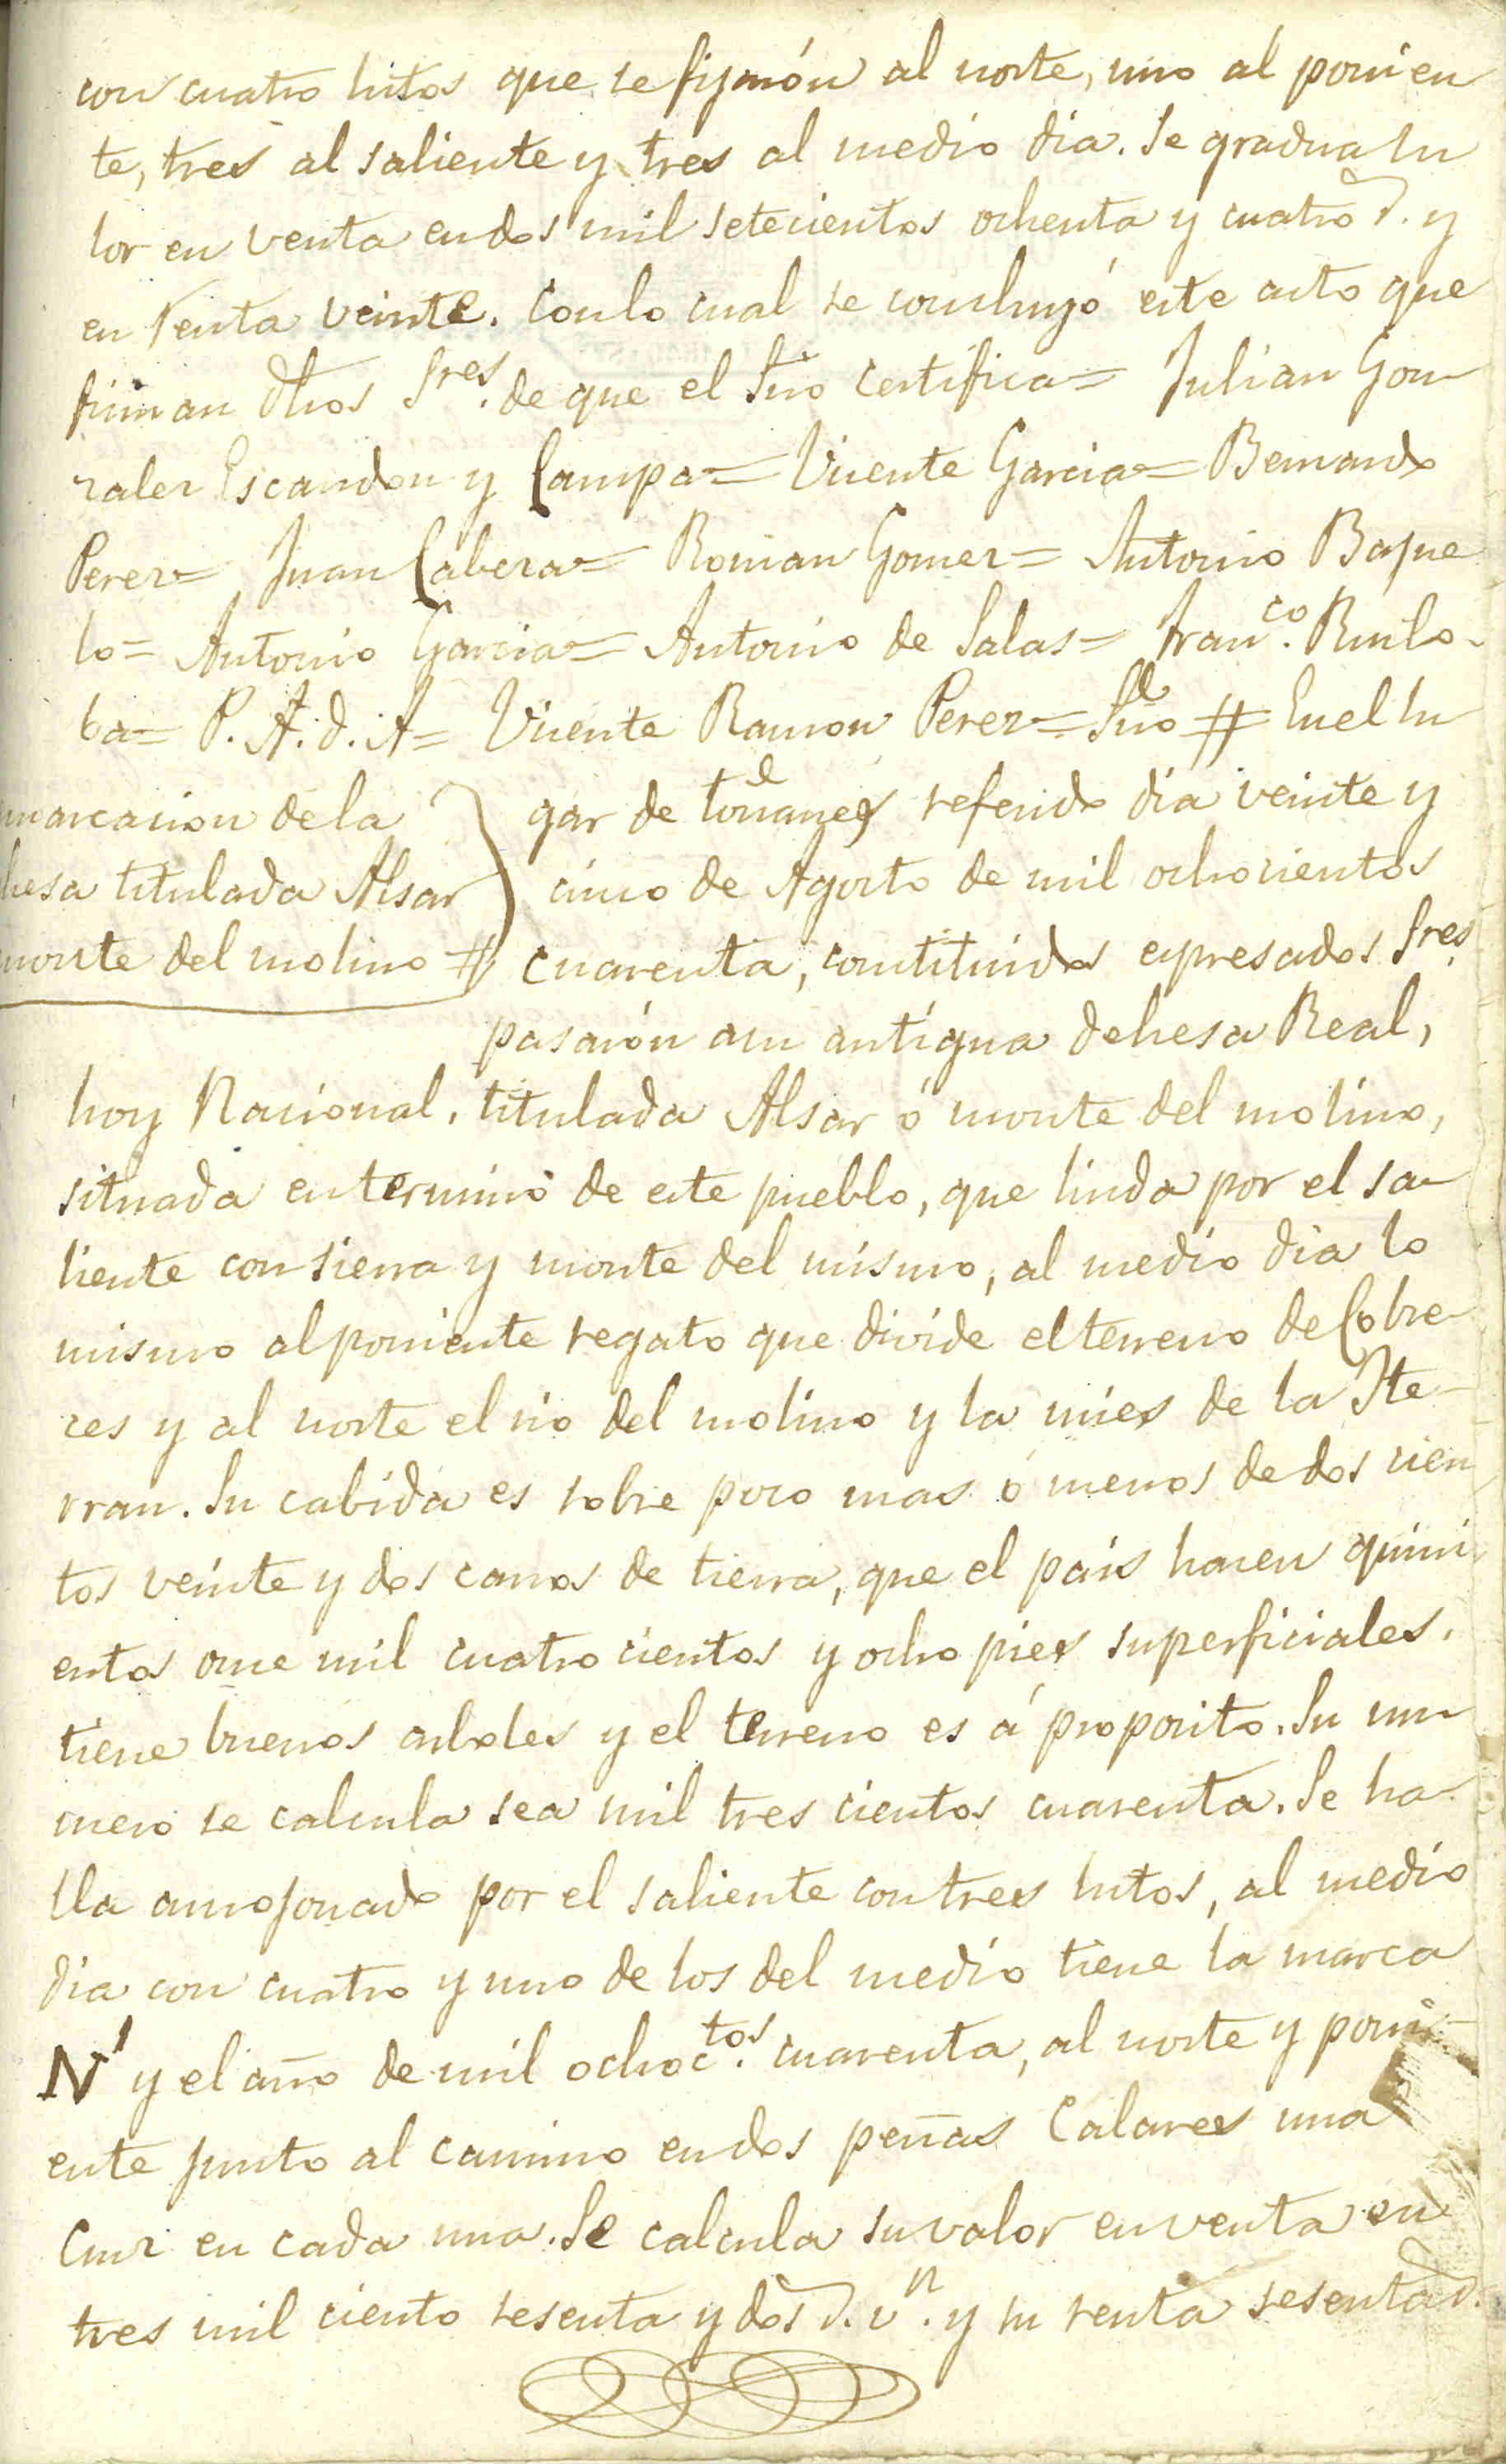 con cuatro hitos que se fijarón al norte, uno al ponien
te, tres al saliente y tres al medio dia. Se gradua su
lor en venta en dos mil setecientos ochenta y cuatro r. y
en renta veinte. Con lo cual se concluyó este acto que
firman dhos Sres. de que el Srio certifica= Julian Gon
zalez Escandon y Campa= Vicente Garcia= Bernardo
Perez= Juan Cabeza= Roman Gomez= Antonio Baque
lo= Antonio Garcia= Antonio de Salas= Fran.co Ruilo-
ba= P. A. d. A= Vicente Ramon Perez= Srio # En el lu
marcacion de la
hesa titulada Alsar
monte del molino #
gar de Toñanes referido dia veinte y
cinco de Agosto de mil ochocientos
cuarenta, constituidos espresados Sres.
pasarón a su antígua dehesa Real,
hoy Nacional, titulada Alsar ó monte del molino,
situada en termino de este pueblo, que linda por el sa-
liente con sierra y monte del mismo, al medio dia lo
mismo al poniente regato que divide el terreno de Cobre-
ces y al norte el rio del molino y la mies de la Ite-
rran. Su cabida es sobre poco mas ó menos de dos cien
tos veinte y dos carros de tierra, que el país hacen quini
entos once mil cuatro cientos y ocho pies superficiales.
tiene buenos arboles y el terreno es á proposito. Su nu-
mero se calcula sea mil tres cientos cuarenta. Se ha-
lla amojonado por el saliente con tres hitos, al medio
dia con cuatro y uno de los del medio tiene la marca
N1 y el año de mil ochoc.tos cuarenta, al norte y poni-
ente junto al camino en dos peñas Calares una
Cruz en cada una. Se calcula su valor en venta en
tres mil ciento sesenta y dos r. v.n y su renta sesenta r.